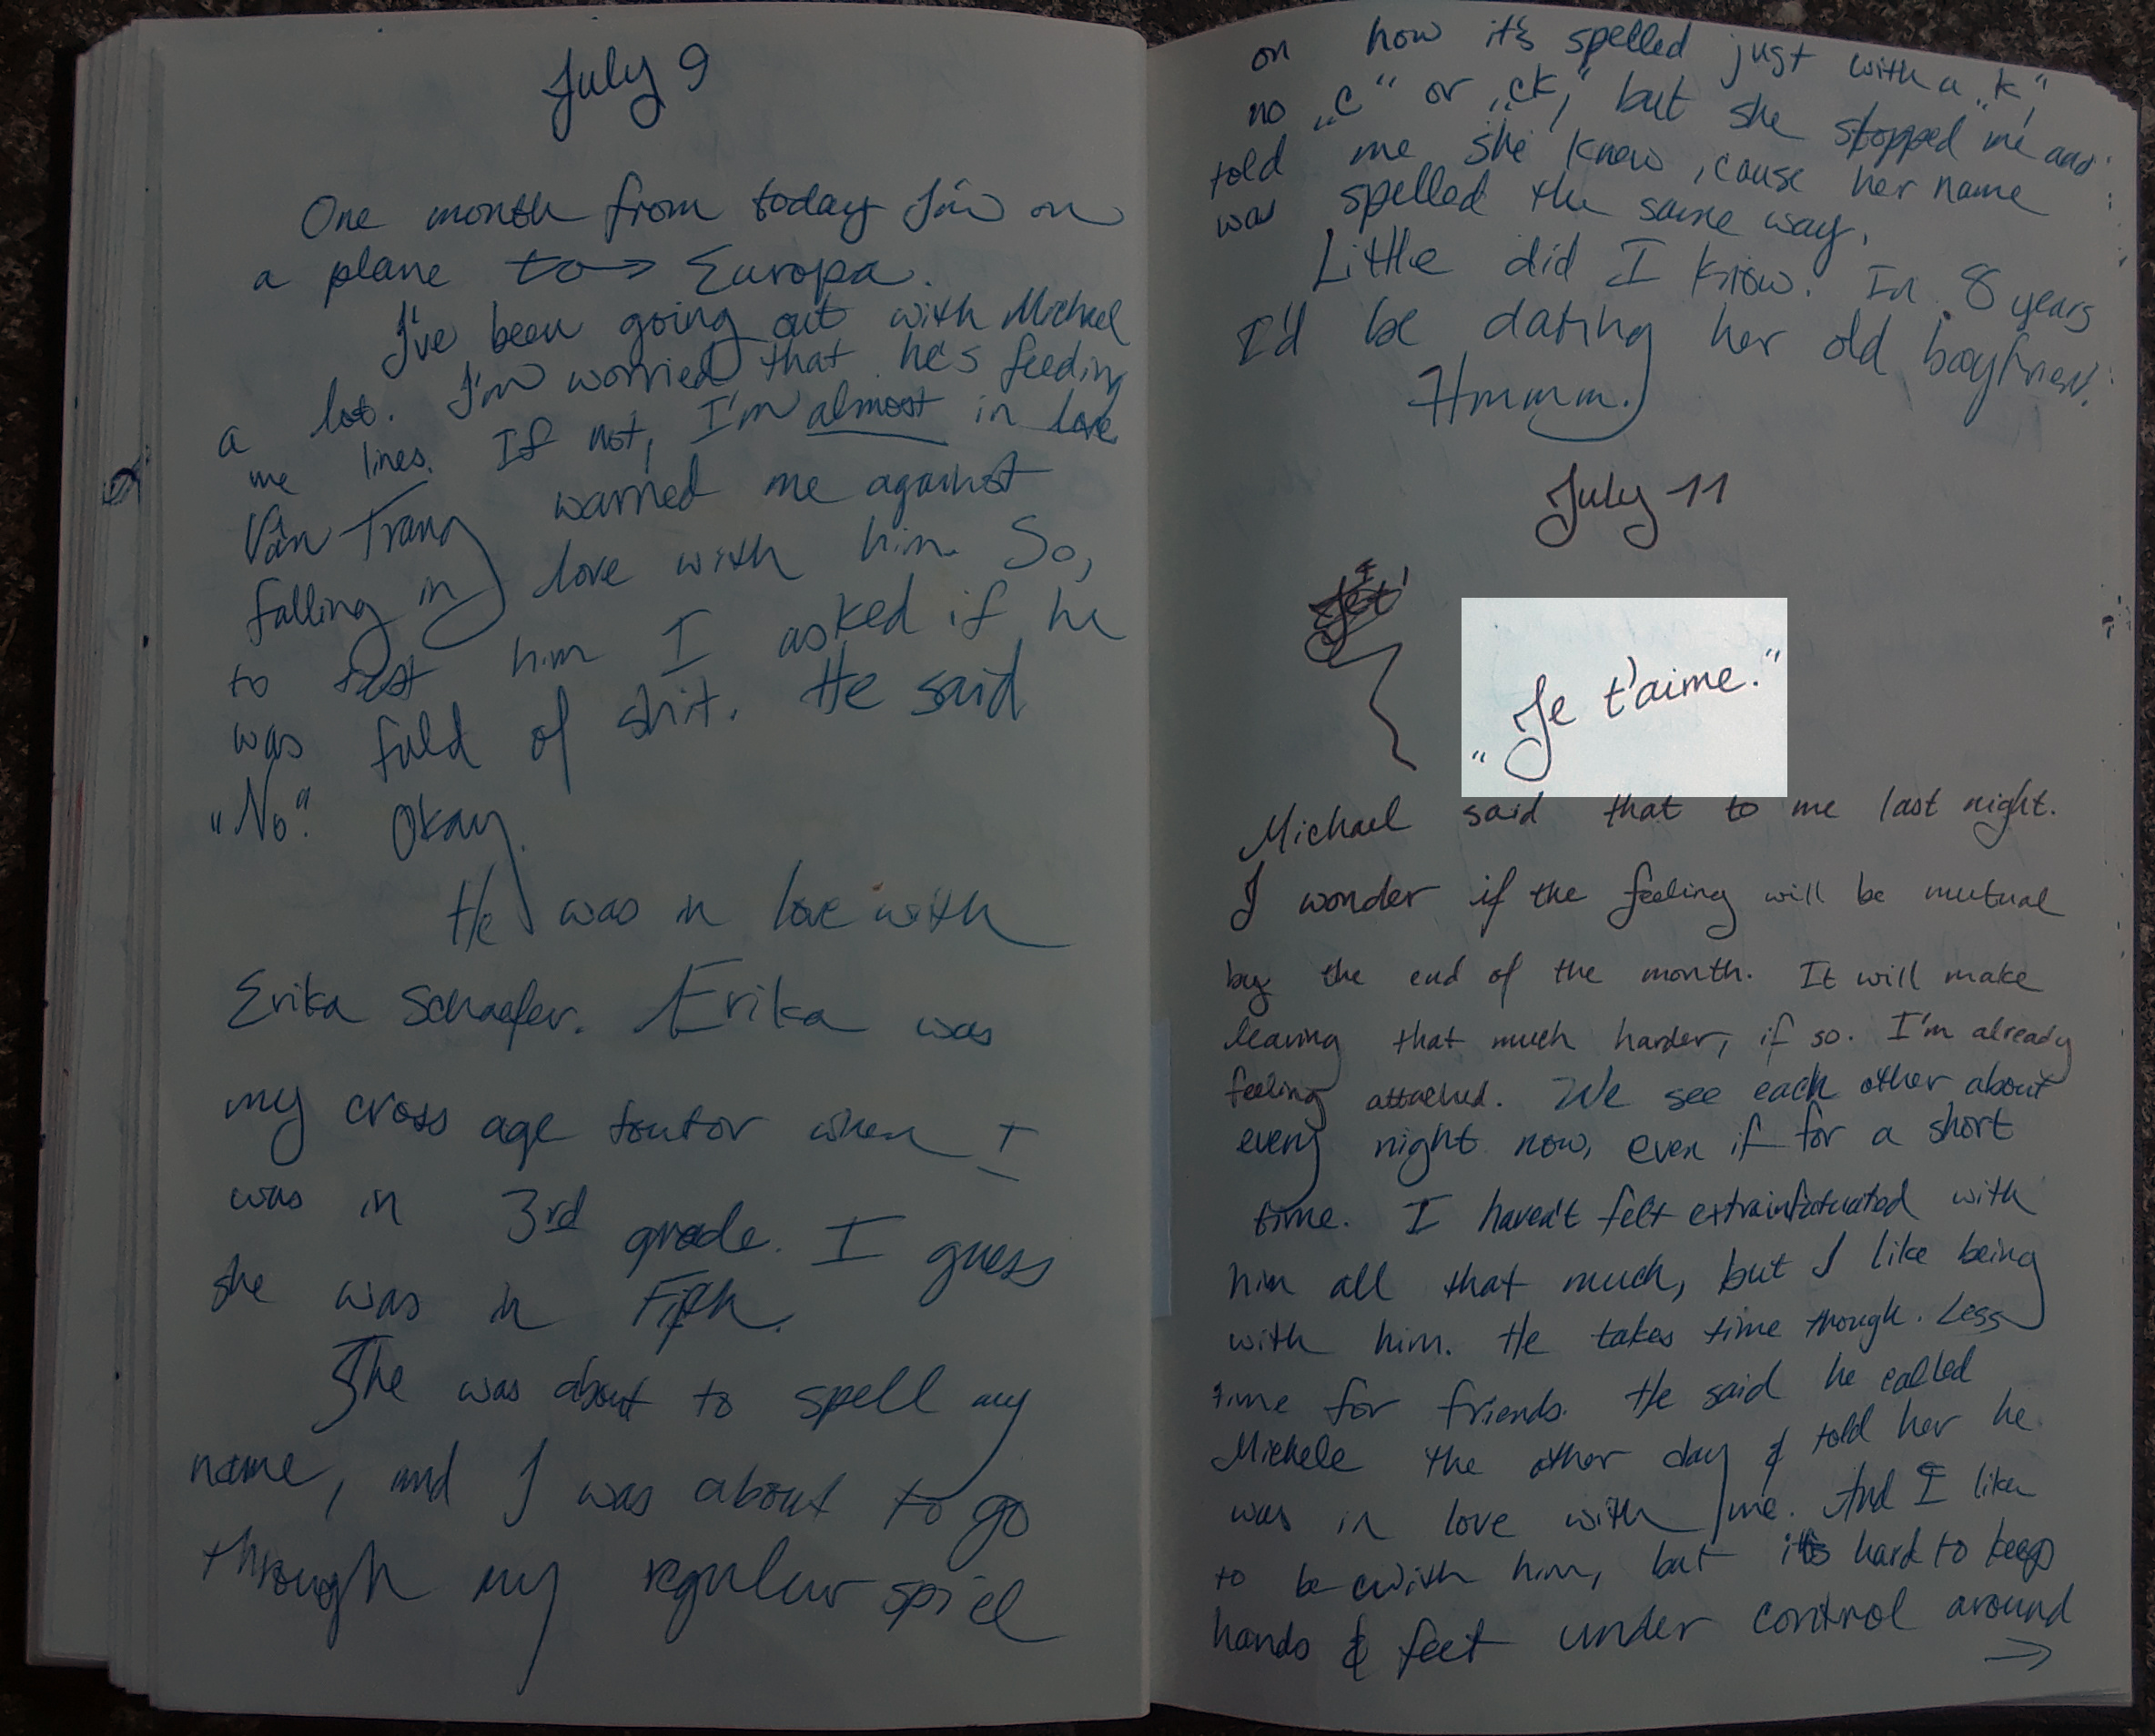 July 9
One month from today I'm on
a plane to → Europa.
I've been going out with Michael
a lot. I'm worried that he's feeding
me lines. If not, I'm almost in love
Vân Trang warned me against
falling in love with him. So,
to test him I asked if he
was full of shit. He said
„No." Okay.
He was in love with
Erika Schaefer. Erika was
my cross age toutor when I
was in 3rd grade. I guess
she was in Fifth.
She was about to spell my
name, and I was about to go
through my regular spiel
on how it's spelled just with a „k",
no „c" or „ck," but she stopped me and
told me she knew, cause her name
was spelled the same way.
Little did I know. In 8 years
I'd be dating her old boyfriend.
Hmmm.
July 11
„Je t'aime."
Michael said that to me last night.
I wonder if the feeling will be mutual
by the end of the month. It will make
leaving that much harder, if so. I'm already
feeling attached. We see each other about
every night now, even if for a short
time. I haven't felt extrainfatuated with
him all that much, but I like being
with him. He takes time though. Less
time for friends. He said he called
Michele the other day & told her he
was in love with me. And I like
to be with him, but it's hard to keep
hands & feet under control around
→